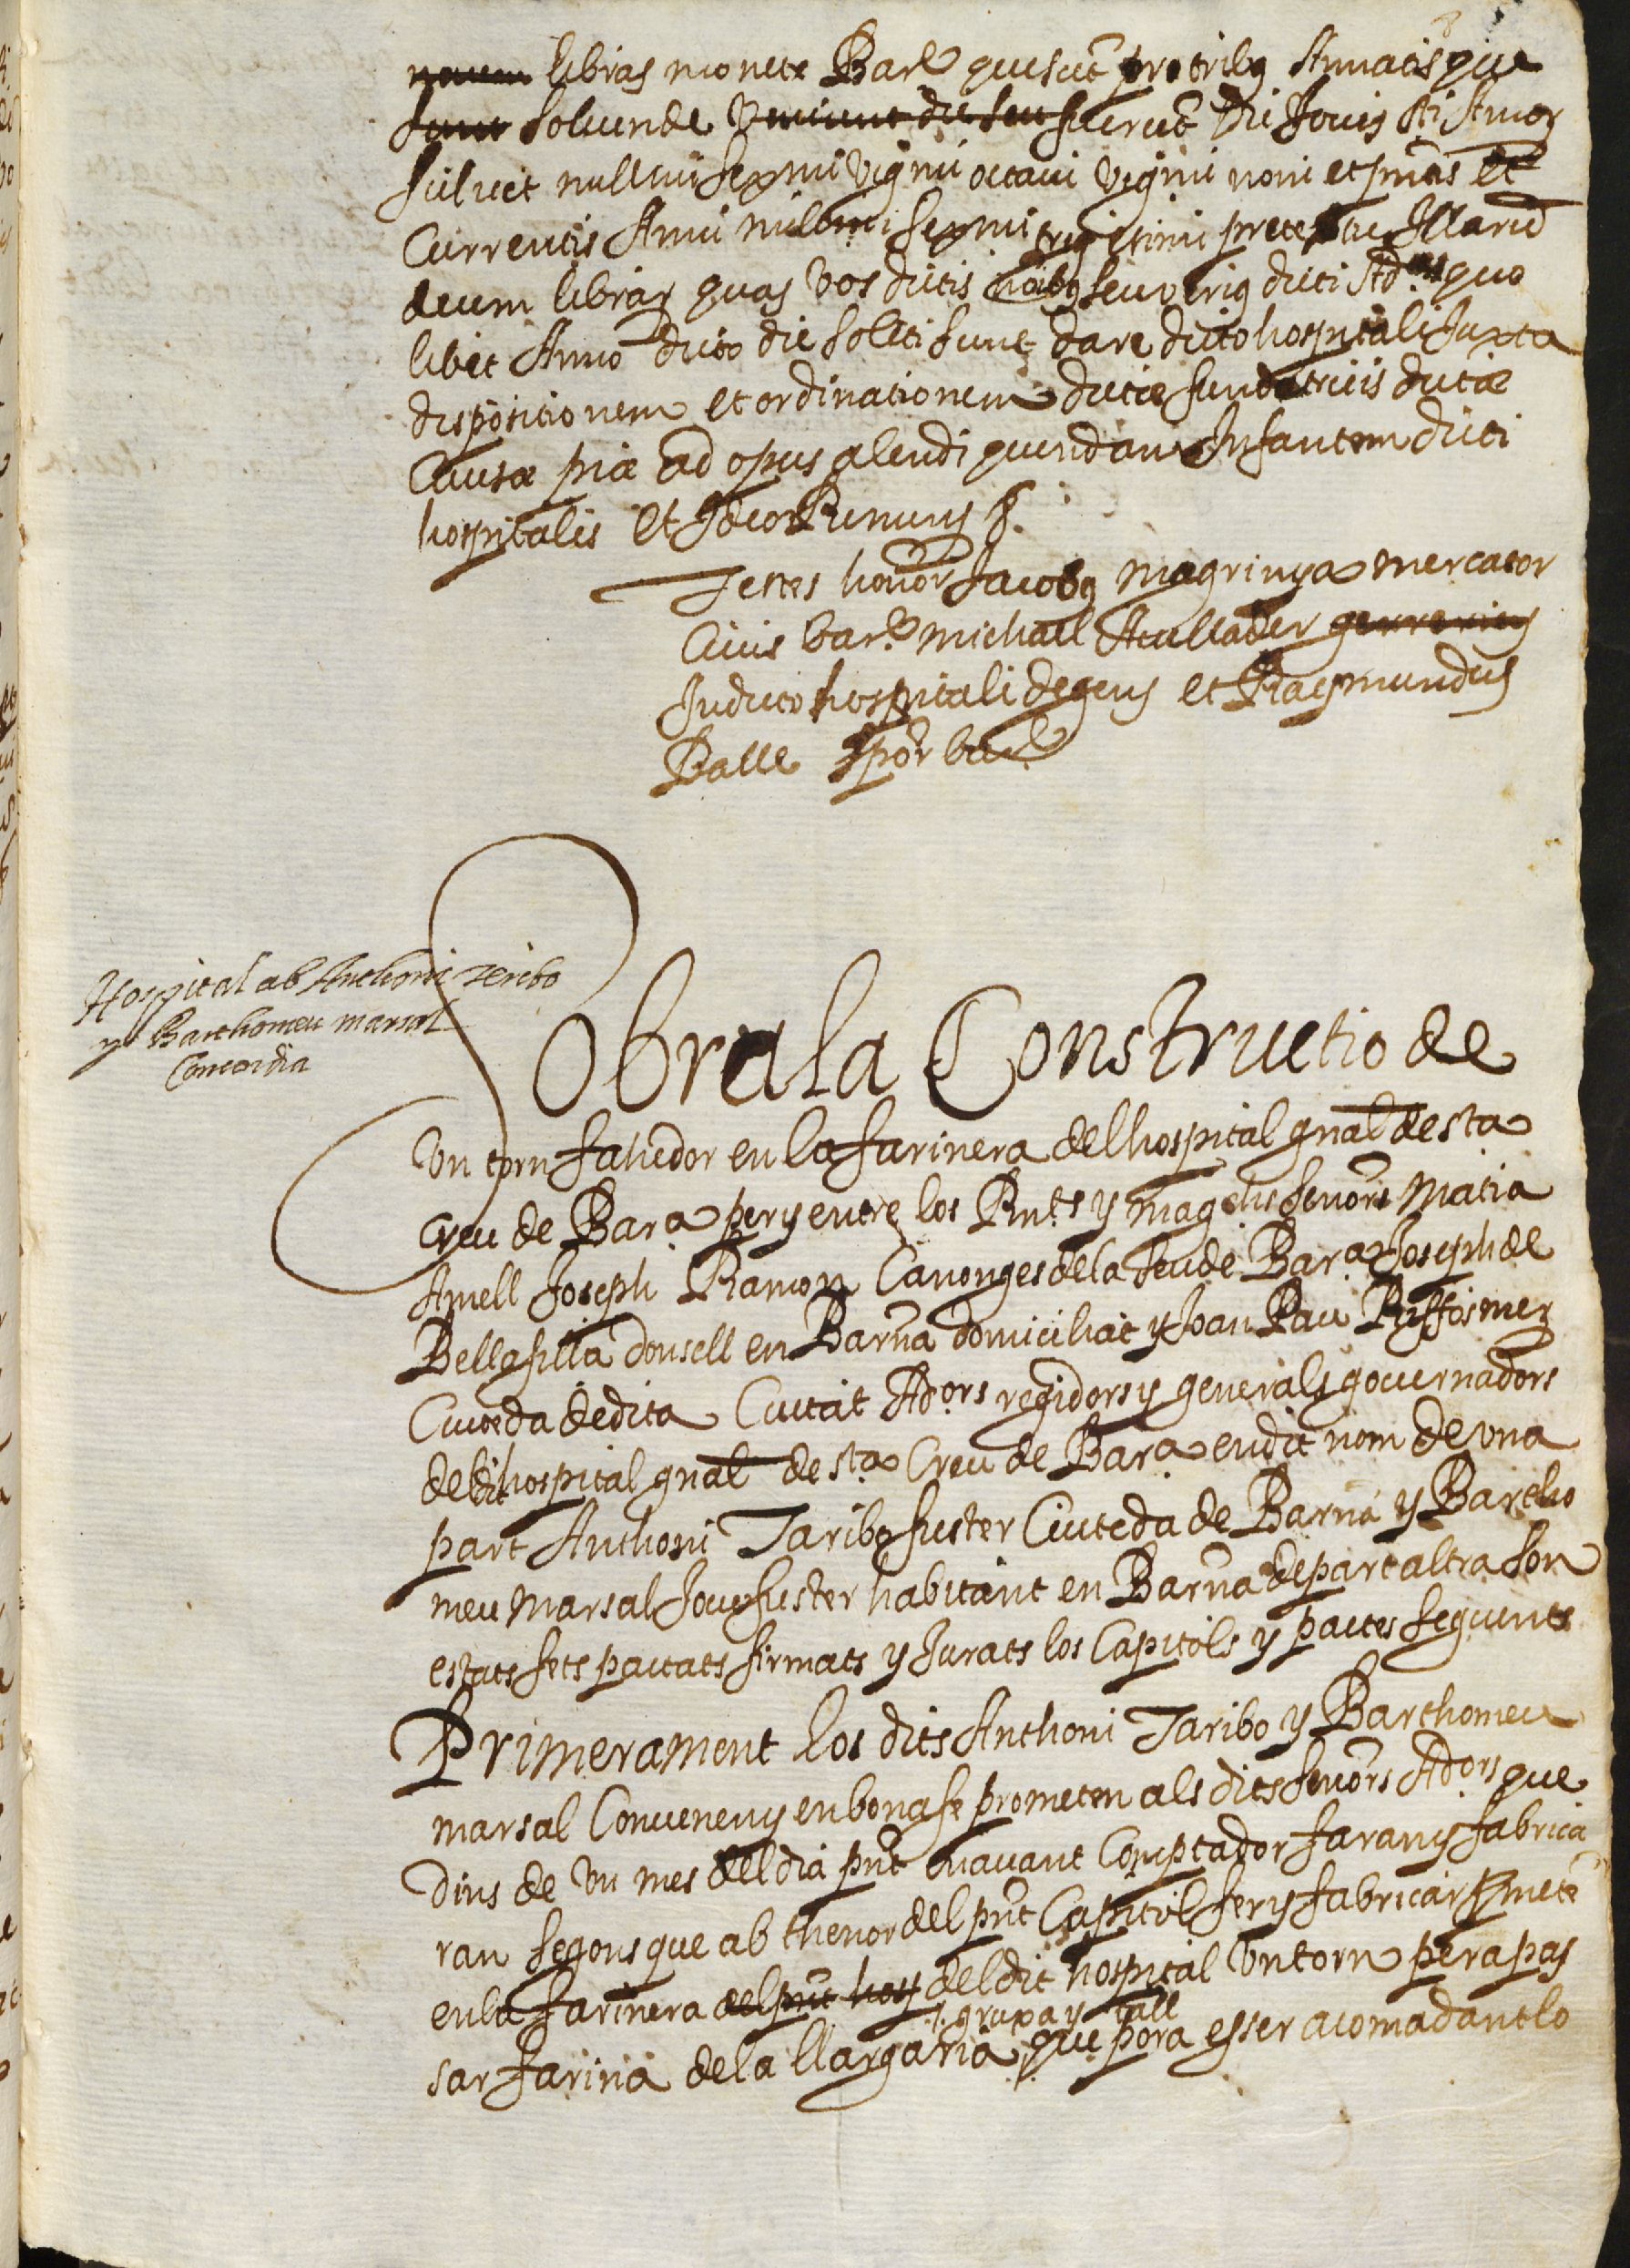 libras monete Barñ que sũt pro tribꝯ Annatis que
sunt soluende veniunt die seu fuerũt die Jouis sti Amos
silicet millmi sexmi vigmi octaui vigmi noni et pñtis et
Currentis Anni millmi sexmi trigesimi pretextu Illarũ
decem libras quas vos dictis noĩbꝯ seu verius dicti Ad.ors quo
libet Anno dicto die soliti sunt dare dicto hospitali Juxta
dispositionem et ordinationem dictæ fundatricis dictæ
Causæ piæ ad opus alendi quendam Infantem dicti
hospitalis et Ideo Renuns &.
Testes honor Jacobꝯ magrinya mercator
Ciuis barñ michael
In dicto hospitali degens et Raymundus
Balle spõr barñ
Hospital ab Anthoni Teribo
y Barthomeu marsal
Concordia
Sobra la Constructio de
Un torn fahedor en la farinera del hospital gñal de sta
Creu de Bar.a per y entre los Rnts y magchs senõrs Matia
Amell Joseph Ramon Canonges de la Seu de Bar.a Joseph de
Bellafilla donsell en Barña domiciliat y Joan Pau Riffos mer
Ciuteda de dita Ciutat Ad.ors regidors y generals gouernadors
del dit hospital gñal de sta Creu de Bar.a en dit nom de una
part Anthoni Taribo fuster Ciuteda de Barña y Bartho
meu Marsal Joue fuster habitant en Barña de part altra son
estats fets pactats firmats y Jurats los Capitols y pactes seguents
Primerament los dits Anthoni Taribo y Barthomeu
marsal Conuenen y en bona fe prometen als dits senõrs Ad.ors que
dins de un mes del dia pñt enauant Comptador faran y fabrica
ran segons que ab thenor del pñt Capitol fer y fabricar ꝓmetẽ
en la farinera del pñt hosp del dit hospital Un torn pera pas
grupa y tall
sar farina de la llargaria que pora esser acomadantlo